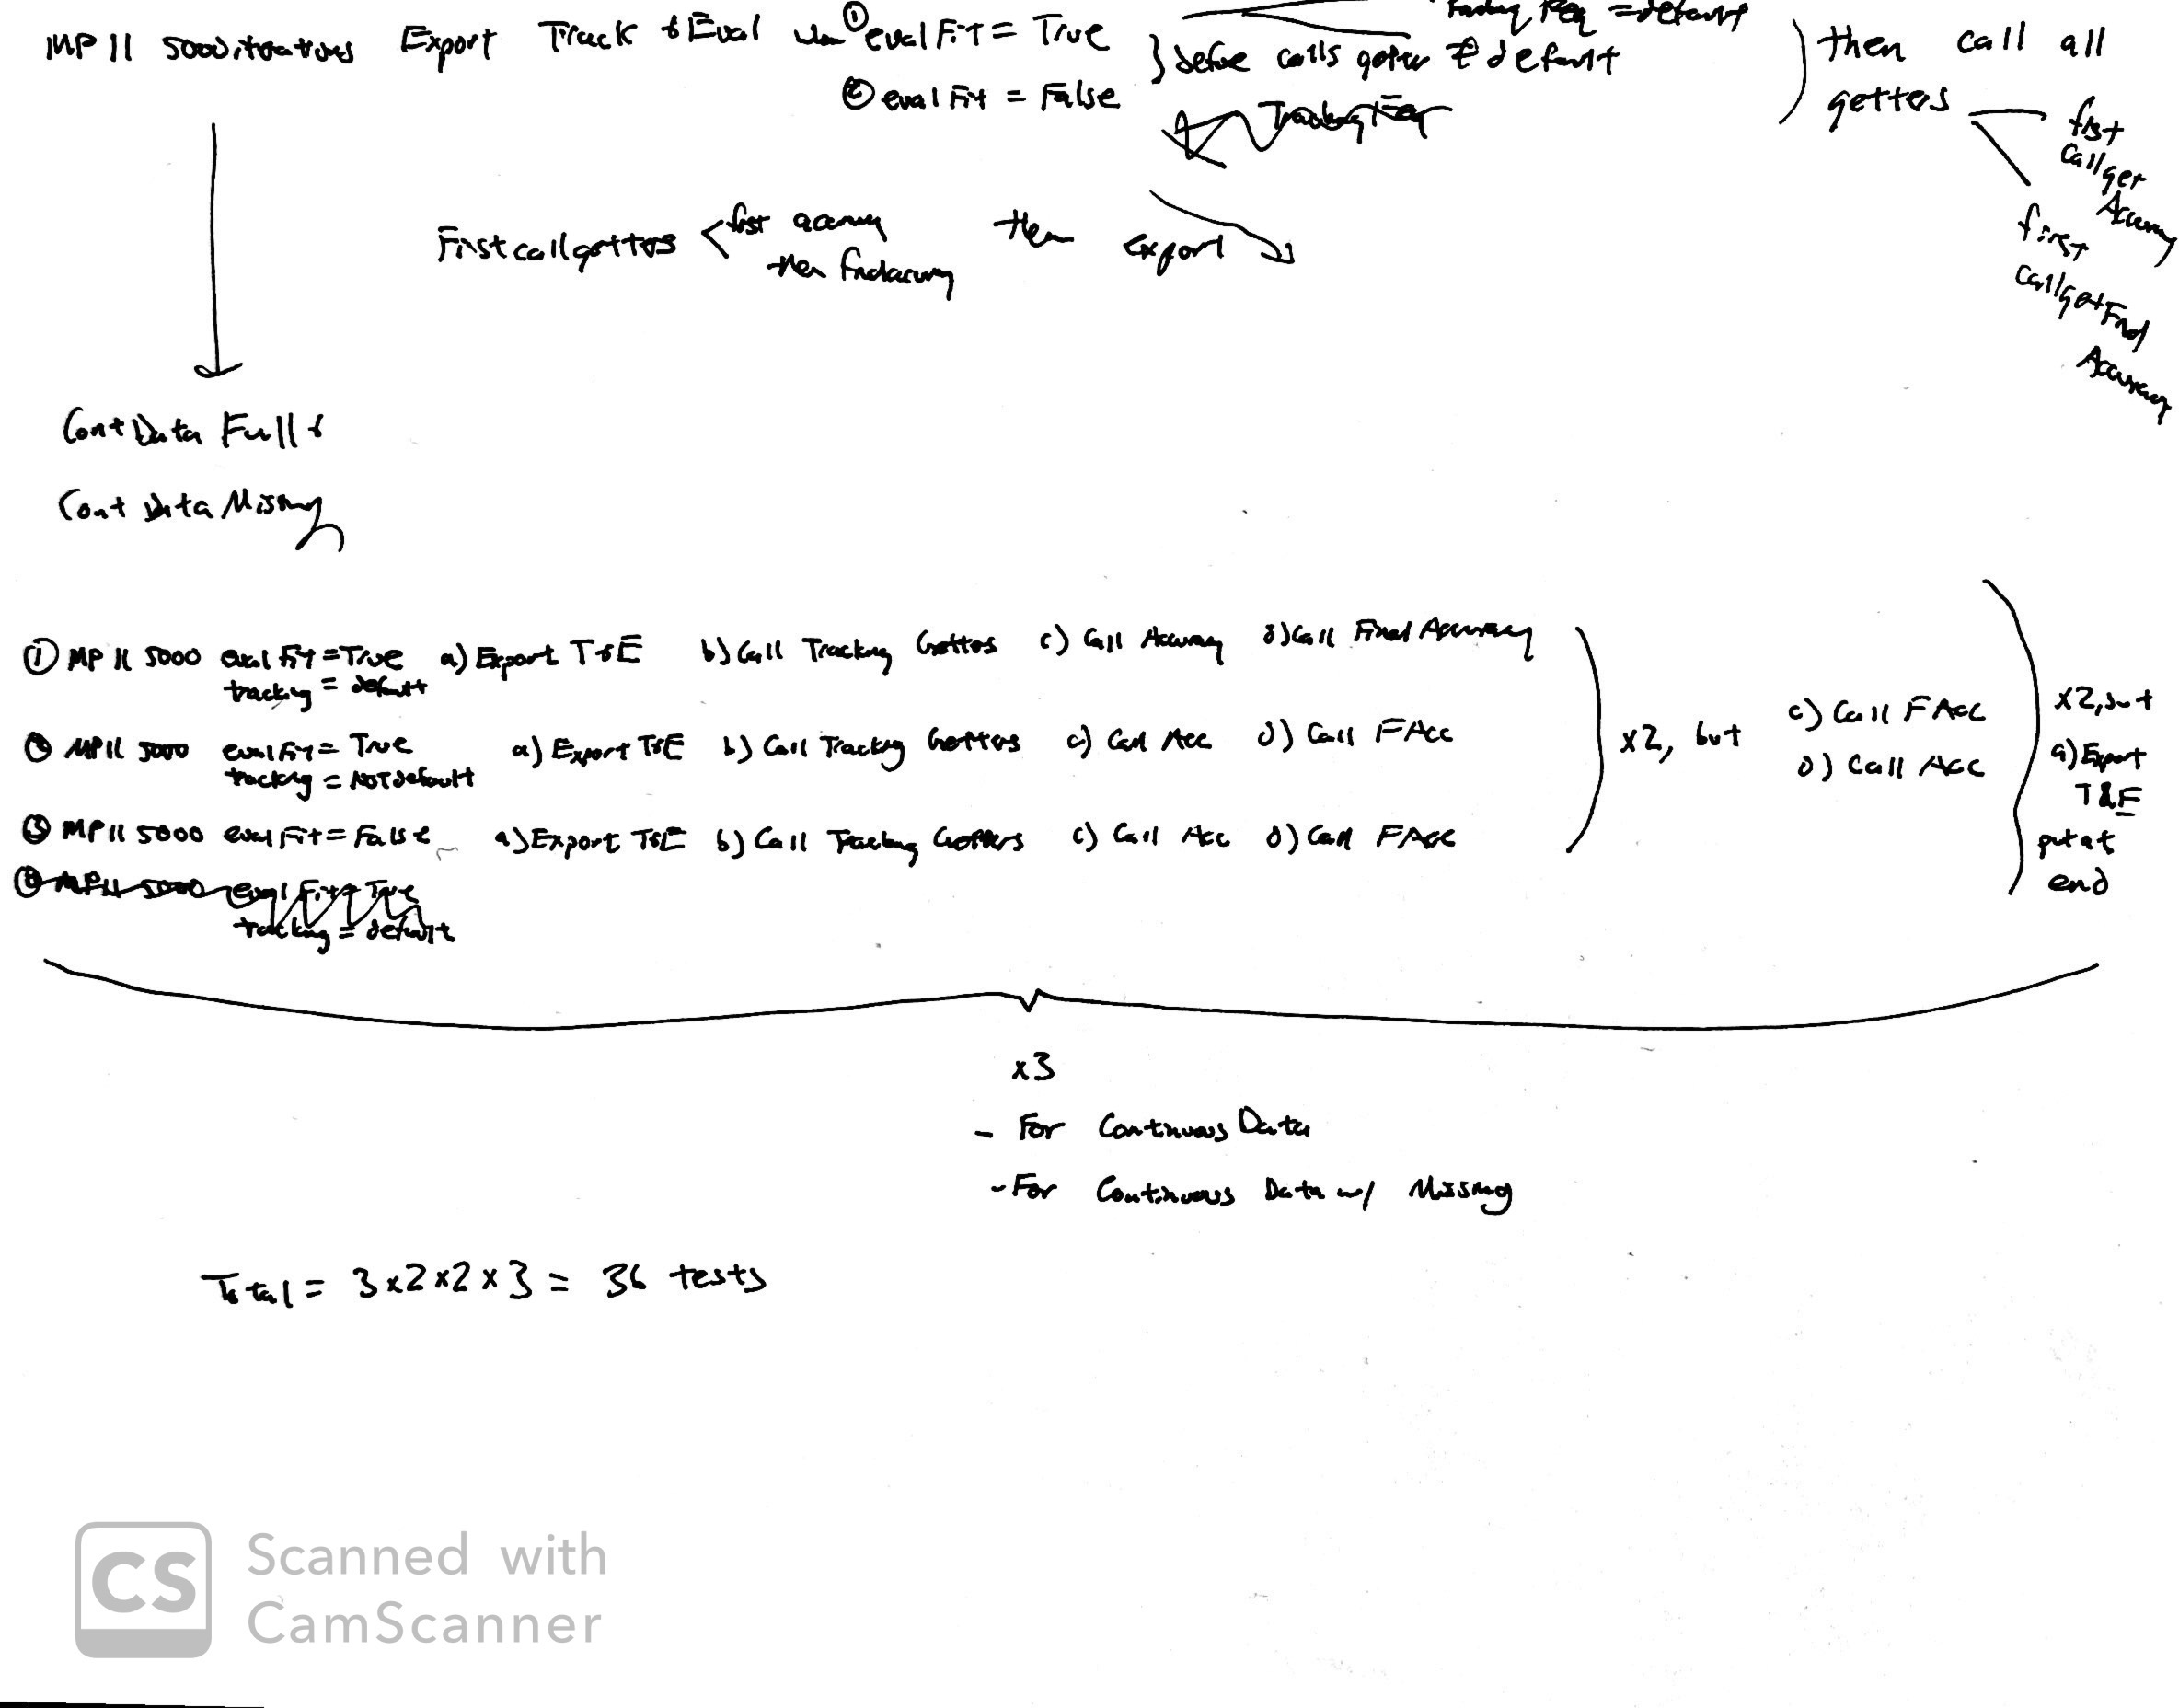 MP 11 5000 iterations Export Track & Eval when ① evalFit = True } define calls getter ≠ default ) then call all getters
Tracking Freq = default
② evalFit = False
Tracking Freq
first call get Accuracy
first call get Final Accuracy
First call getters < first accuracy then Final accuracy then export
Cont Data Full &
Cont Data Missing
① MP 11 5000 eval Fit = True a) Export T&E b) Call Tracking Getters c) Call Accuracy d) Call Final Accuracy
tracking = default
② MP 11 5000 eval Fit = True a) Export T&E b) Call Tracking Getters c) Call Acc d) Call FAcc
tracking = NOT default
③ MP 11 5000 eval Fit = False a) Export T&E b) Call Tracking Getters c) Call Acc d) Call FAcc
④ MP 11 5000 eval Fit = True
tracking = default
x2, but
c) Call FAcc
d) Call Acc
x2, but
a) Export
T&E
put at
end
x3
- For Continuous Data
- For Continuous Data w/ Missing
Total = 3x2x2x3 = 36 tests
CS
Scanned with
CamScanner